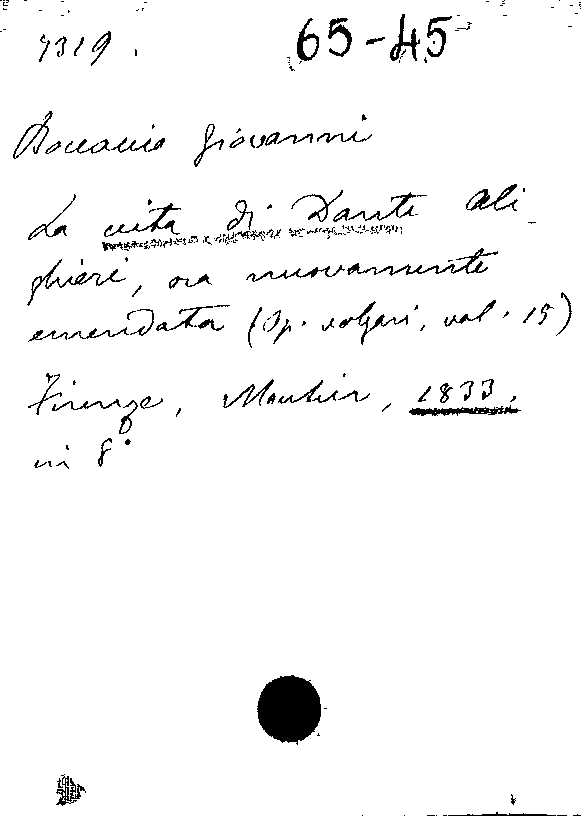 7319.
65-45
Boccaccio Giovanni
La vita di Dante Ali-
ghieri, ora nuovamente
emendata (Op. volgari, vol. 15)
Firenze, Moutier, 1833.
in 8°